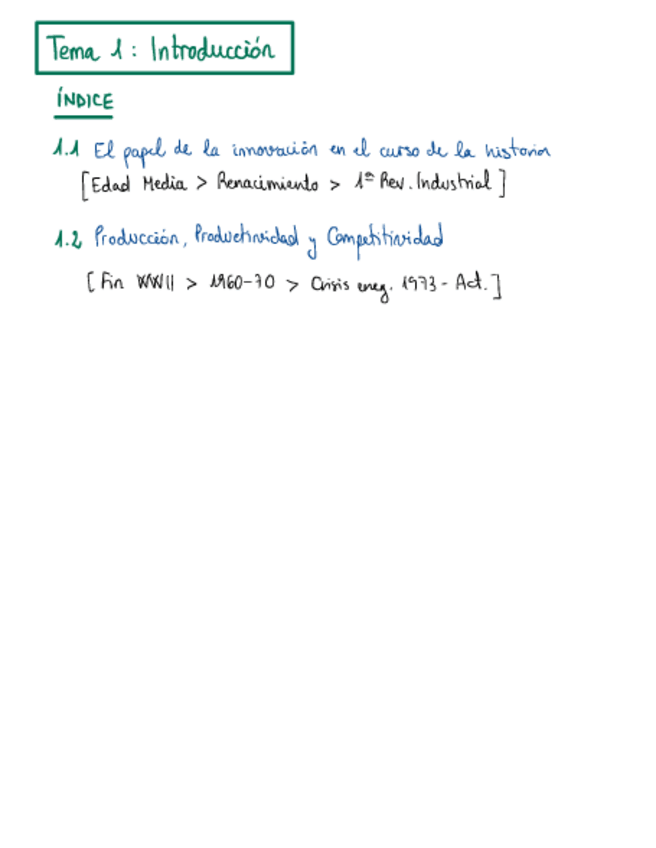 Tema 1: Introducción
ÍNDICE
1.1 El papel de la innovación en el curso de la historia
[Edad Media > Renacimiento > 1ª Rev. Industrial]
1.2 Producción, Productividad y Competitividad
[Fin WWII > 1960-70 > Crisis eneg. 1973 - Act.]